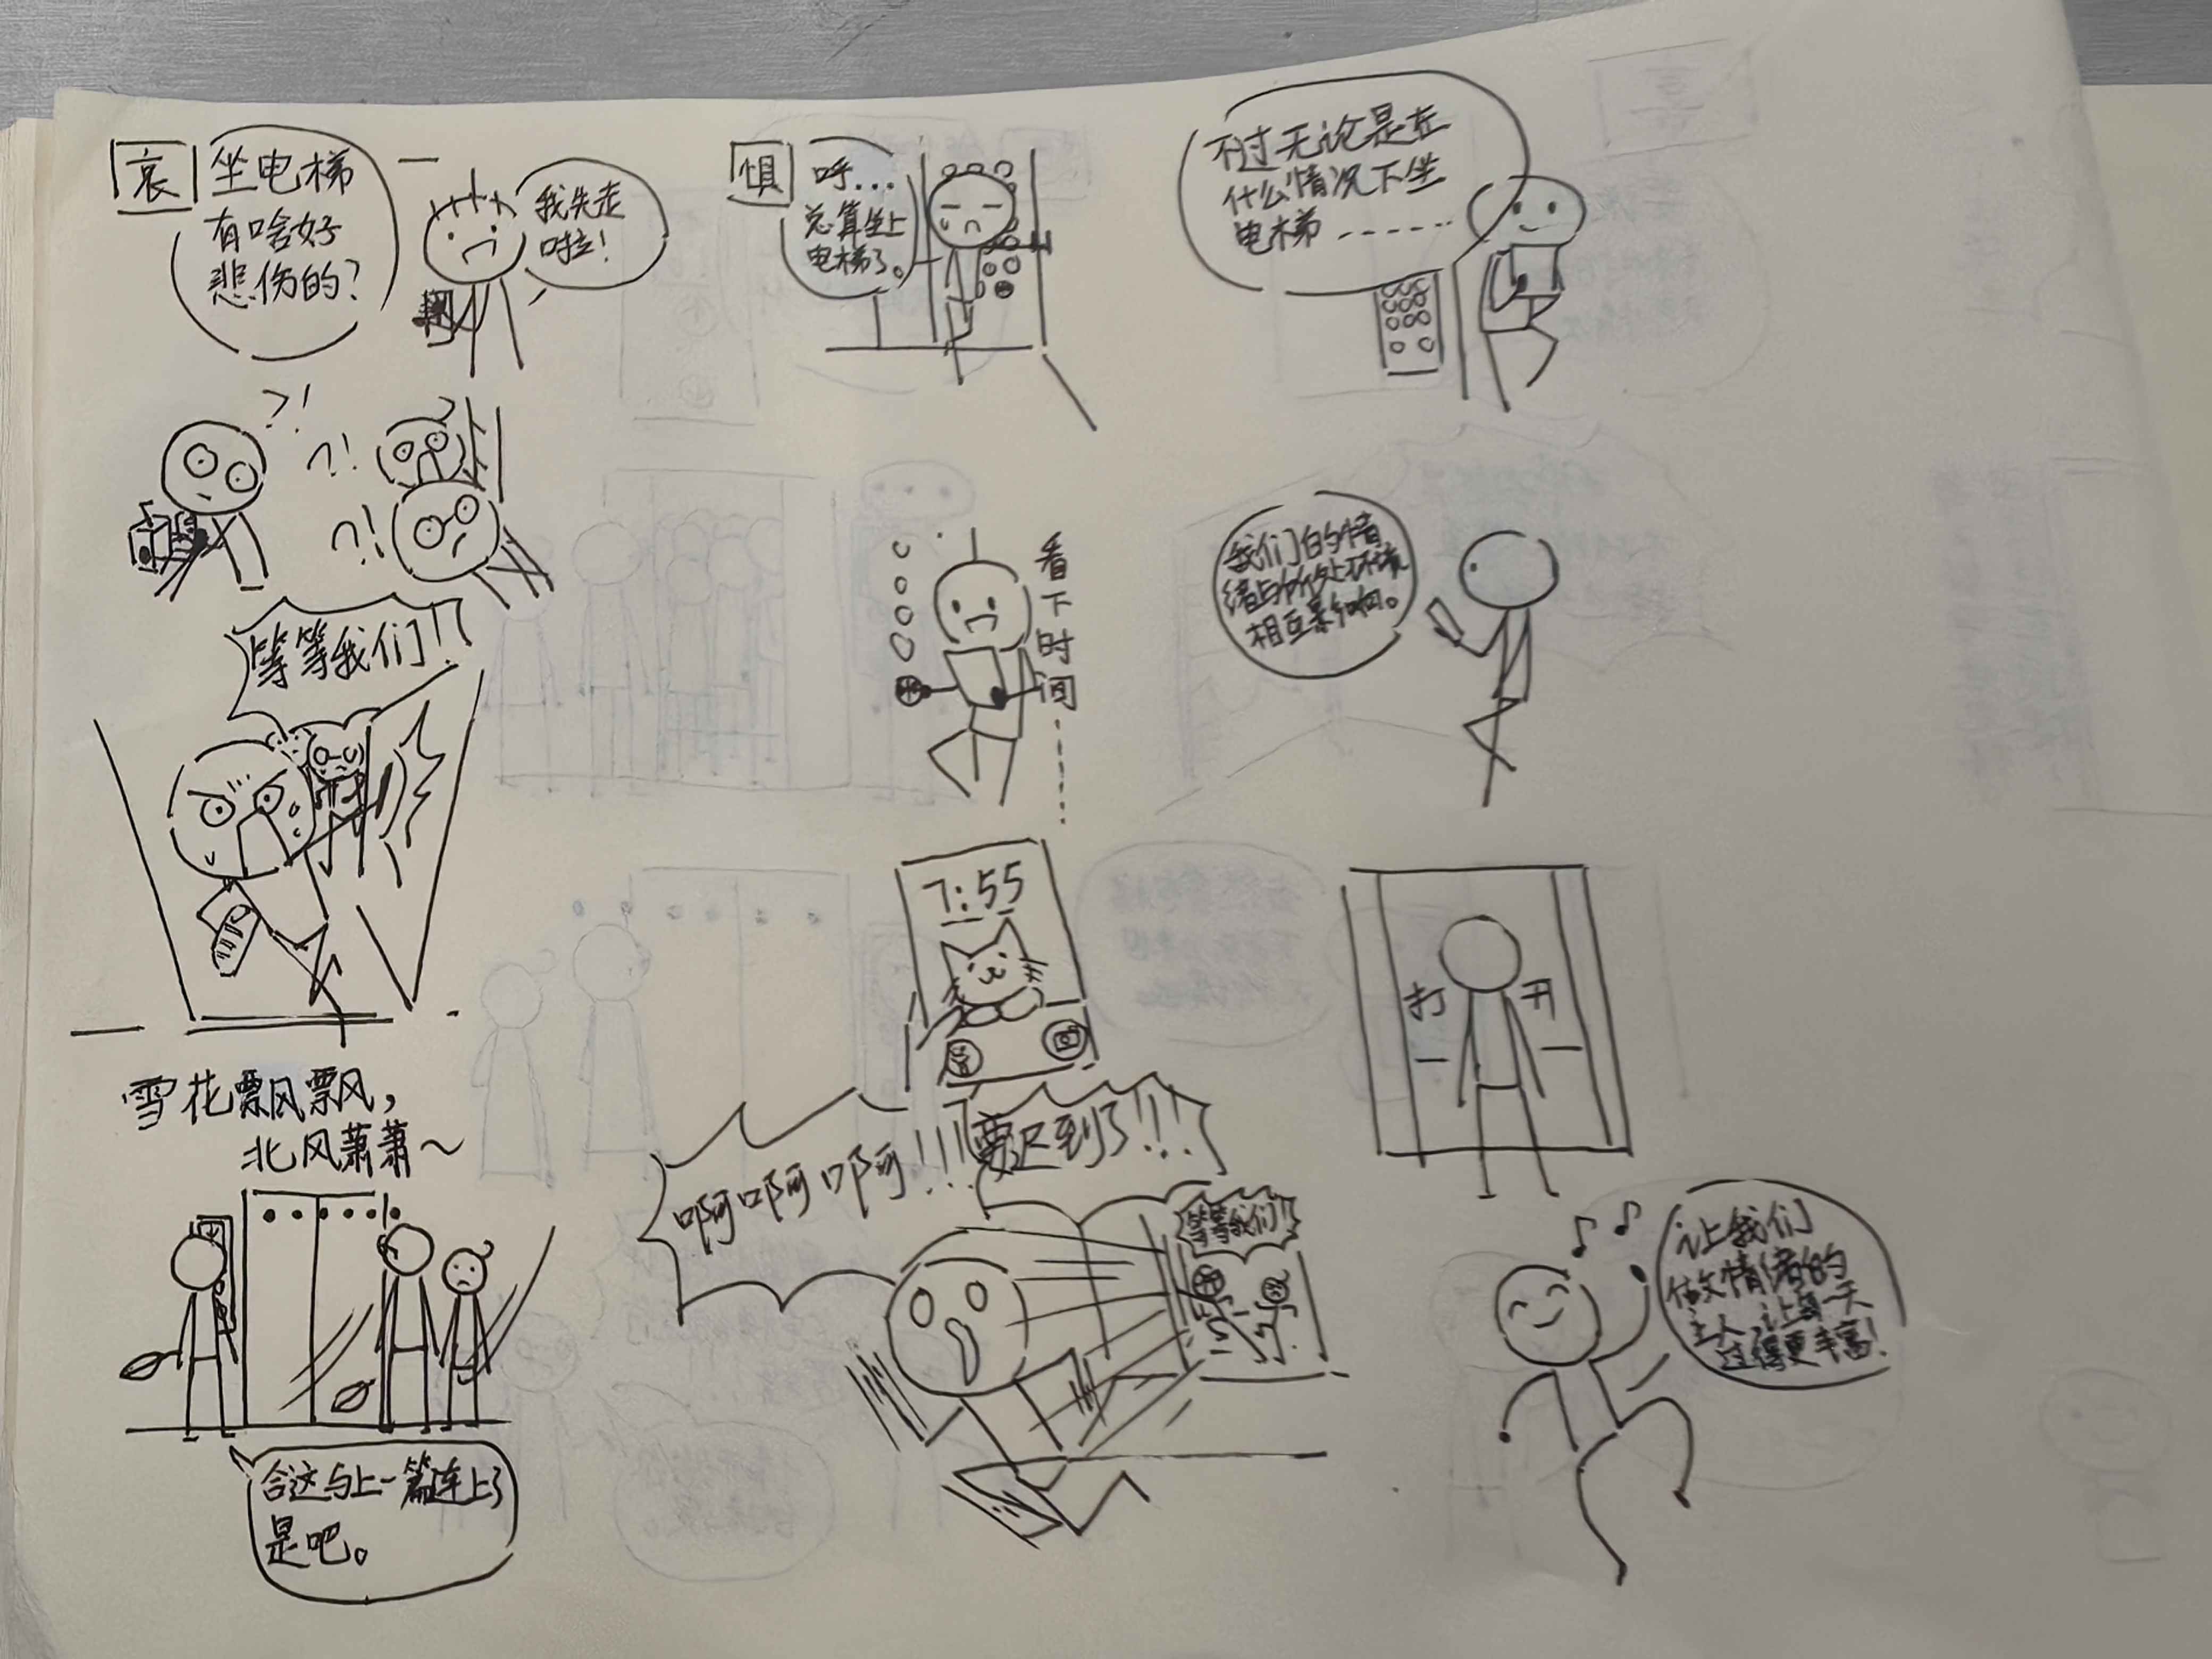 哀
坐电梯
有啥好
悲伤的？
我先走
啦！
?!
?!
?!
等等我们!!
雪花飘飘，
北风萧萧～
合这与上一篇连上了
是吧。
惧
呼…
总算坐上
电梯了。
看下时间……
7:55
啊啊啊啊!!!要迟到了!!!
等等我们!!
不过无论是在
什么情况下坐
电梯……
我们的情
绪与所处环境
相互影响。
打开
让我们
做情绪的
主人，让每一天
过得更丰富！